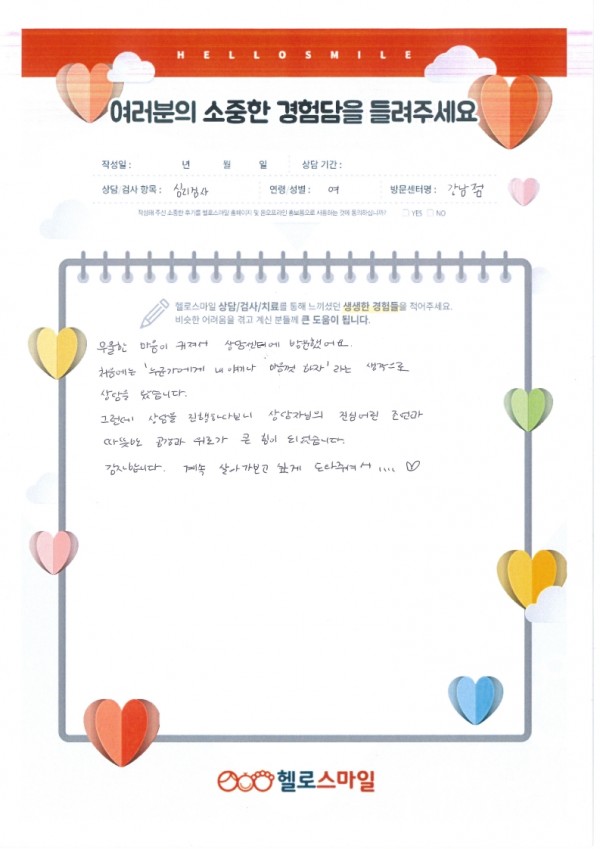 HELLOSMILE
여러분의 소중한 경험담을 들려주세요
작성일 : 년 월 일 상담 기간 :
상담, 검사 항목 : 심리검사 연령/성별 : 여 방문센터명 : 강남점
작성해 주신 소중한 후기를 헬로스마일 홈페이지 및 온오프라인 홍보용으로 사용하는 것에 동의하십니까? YES NO
헬로스마일 상담/검사/치료를 통해 느끼셨던 생생한 경험들을 적어주세요.
비슷한 어려움을 겪고 계신 분들께 큰 도움이 됩니다.
우울한 마음이 커져서 상담센터에 방문했어요.
처음에는 '누군가에게 내 얘기나 마음껏 하자' 라는 생각으로
상담을 왔습니다.
그런데 상담을 진행하다보니 상담자님의 진심어린 조언과
따뜻한 공감과 위로가 큰 힘이 되었습니다.
감사합니다. 계속 살아가보고 싶게 도와줘서 .... ♡
헬로스마일